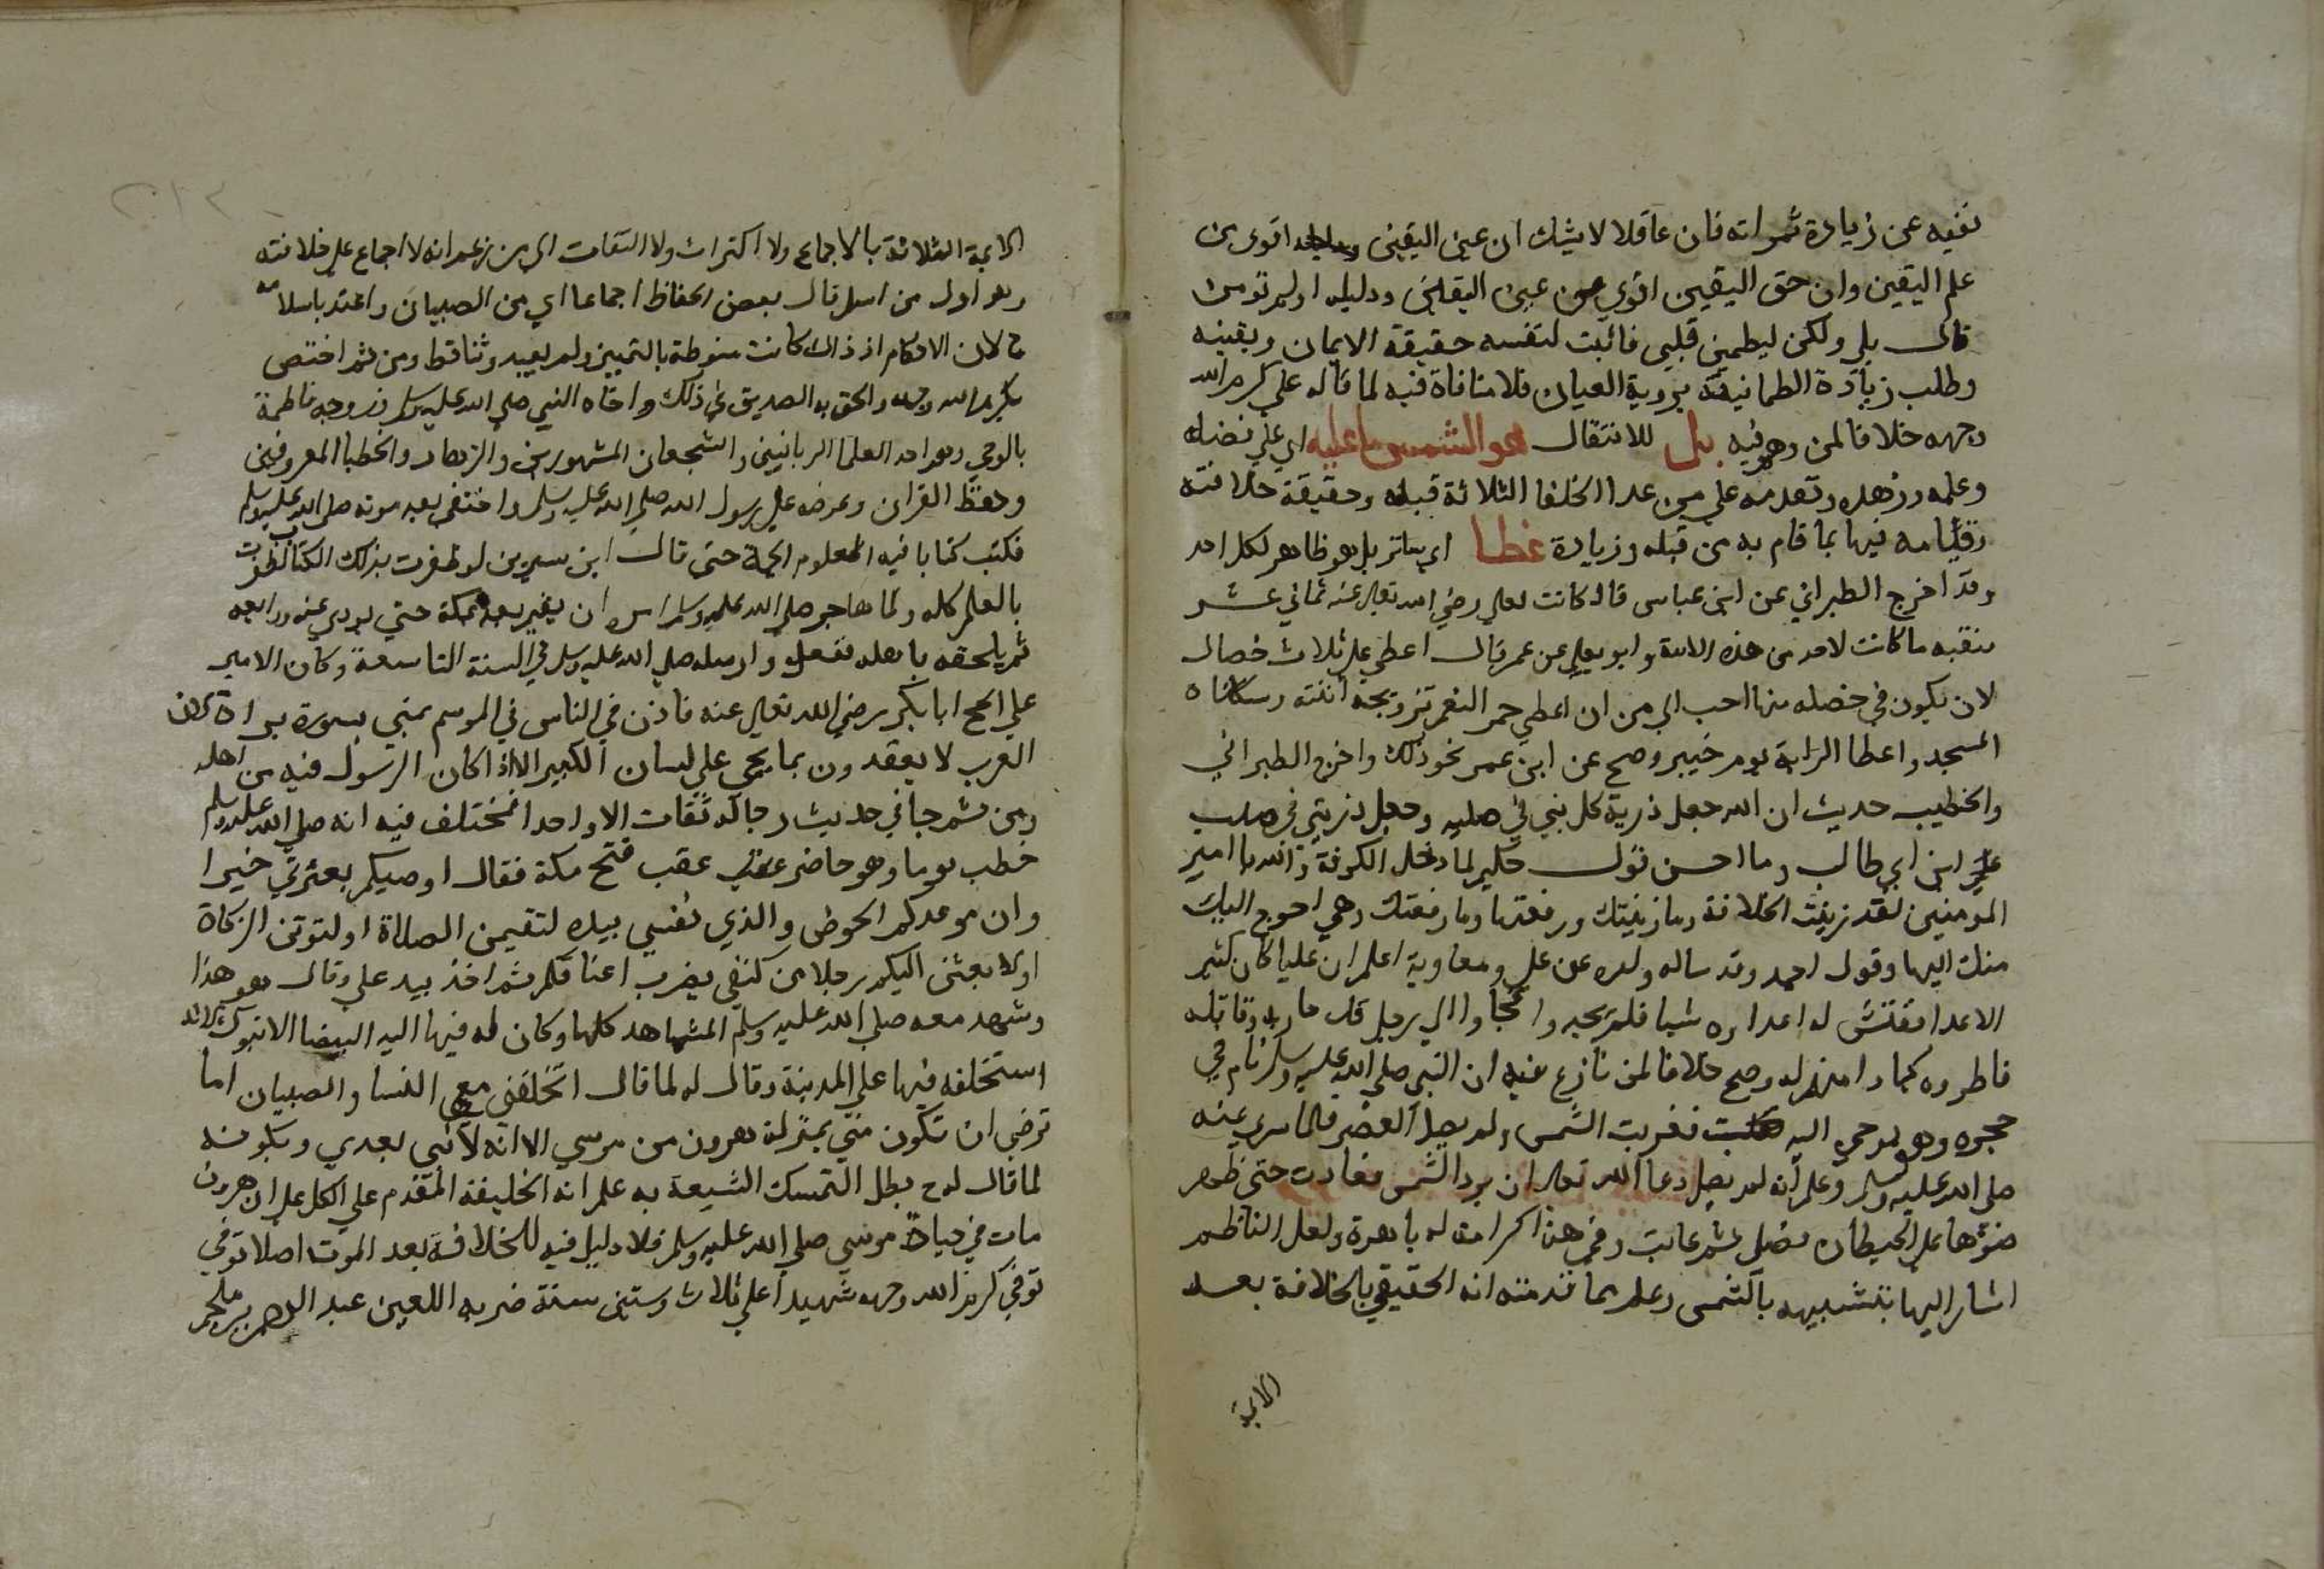 نفيه عن زيادة ثمراته فان عاقلا لا يشك ان عين اليقين ودليله اقوى من
علم اليقين وان حق اليقين اقوي من عين اليقين ودليله اولم تومن
قال بلي ولكن ليطمين قلبي فاثبت لنفسه حقيقة الايمان ويقينه
وطلب زيادة الطمانينة بروية العيان فلا منافاة فيه لما قاله علي كرم الله
وجهه خلافا لمن وهم فيه بل للانتقال هو الشمس ما عليه اي علي فضله
وعلمه وزهده وتقدمه علي من عدا الخلفا الثلاثة قبله وحقيقة خلافته
وقيامه فيها بما قام به من قبله وزيادة غطا اي ساتر بل هو ظاهر لكل احد
وقد اخرج الطبراني عن ابن عباس قال كانت لعلي رضي الله تعالي عنه ثماني عشر
منقبه ما كانت لاحد من هذه الامة وابو يعلي عن عمر قال اعطي علي ثلاث خصال
لان يكون في خصله منها احب الي من ان اعطي حمر النعم تزويجه ابنته وسكناه
المسجد واعطا الراية يوم خيبر وصح عن ابن عمر نحو ذلك واخرج الطبراني
والخطيب حديث ان الله جعل ذرية كل نبي في صلبه وجعل ذريتي في صلب
علي ابن ابي طالب وما احسن قول حكيم لما دخل الكوفة والله يا امير
المومنين لقد زينت الخلافة وما زينتك ورفعتها وما رفعتك وهي احوج اليك
منك اليها وقول احمد وقد ساله ولده عن علي ومعاوية اعلم ان عليا كان كثير
الاعدا ففتش له اعداوه شيا فلم يجدوا فجاوا الي رجل قد حاربه وقاتله
فاطروه كيدا منهم له وصح خلافا لمن نازع فيه ان النبي صلي الله عليه وسلم نام في
حجره وهو يوحي اليه فغربت الشمس ولم يصل العصر فلما سري عنه
صلي الله عليه وسلم وعلم انه لم يصل دعا الله تعالي ان يرد الشمس فعادت حتى ظهر
ضوها علي الحيطان فصلى ثم غابت وفي هذا كرامة له باهرة ولعل الناظم
اشار اليها بتشبيهه بالشمس وعلم مما قدمته انه الحقيقي بالخلافة بعد
الايمة
الايمة الثلاثة بالاجماع ولا اكتراث ولا التفات الي من زعم انه لا اجماع علي خلافته
وهو اول من اسلم قال بعض الحفاظ اجماعا اي من الصبيان واعتد باسلامه
ح لان الاحكام اذ ذاك كانت منوطة بالتمييز ولم يعبد وثنا قط ومن ثم اختص
بكرم الله وجهه والحق به الصديق في ذلك واخاه النبي صلي الله عليه وسلم وزوجه فاطمة
بالوحي وهو احد العلما الربانيين والشجعان المشهورين والزهاد والخطبا المعروفين
وحفظ القران وعرضه علي رسول الله صلي الله عليه وسلم واختفي بعد موته صلي الله عليه وسلم
فكتب كتابا فيه العلوم الجمة حتى قال ابن سيرين لو ظفرت بذلك الكتاب لظفرت
بالعلم كله ولما هاجر صلي الله عليه وسلم امره ان يقيم بعده بمكة حتي يودي عنه ودايعه
ثم يلحقه باهله ففعل وارسله صلي الله عليه وسلم في السنة التاسعة وكان الامير
علي الحج ابا بكر رضي الله تعالي عنه فاذن في الناس في الموسم بمني بسورة براة لان
العرب لا يعقدون بما يجي علي لسان الكبير الا اذا كان الرسول فيه من اهله
ومن ثم جا في حديث رجاله ثقات الا واحدا فمختلف فيه انه صلي الله عليه وسلم
خطب يوما وهو حاضر عقب فتح مكة فقال اوصيكم بعترتي خيرا
وان موعدكم الحوض والذي نفسي بيده لتقيمن الصلاة ولتوتن الزكاة
او لابعثن اليكم رجلا من كنفي يضرب اعناقكم ثم اخذ بيد علي وقال هو هذا
وشهد معه صلي الله عليه وسلم المشاهد كلها وكان له فيها اليد البيضا الا تبوك لانه
استخلفه فيها علي المدينة وقال له لما قال اتخلفني مع النسا والصبيان اما
ترضى ان تكون مني بمنزلة هرون من موسي الا انه لا نبي بعدي وبكونه
لما قال له ح بطل التمسك الشيعة به علم انه الخليفة المقدم علي الكل علي ان هرون
مات في حياة موسى صلي الله عليه وسلم فلا دليل فيه للخلافة بعد الموت اصلا توفي
توفي كرم الله وجهه شهيدا علي ثلاث وستين سنة ضربه اللعين عبد الرحمن بن ملجم